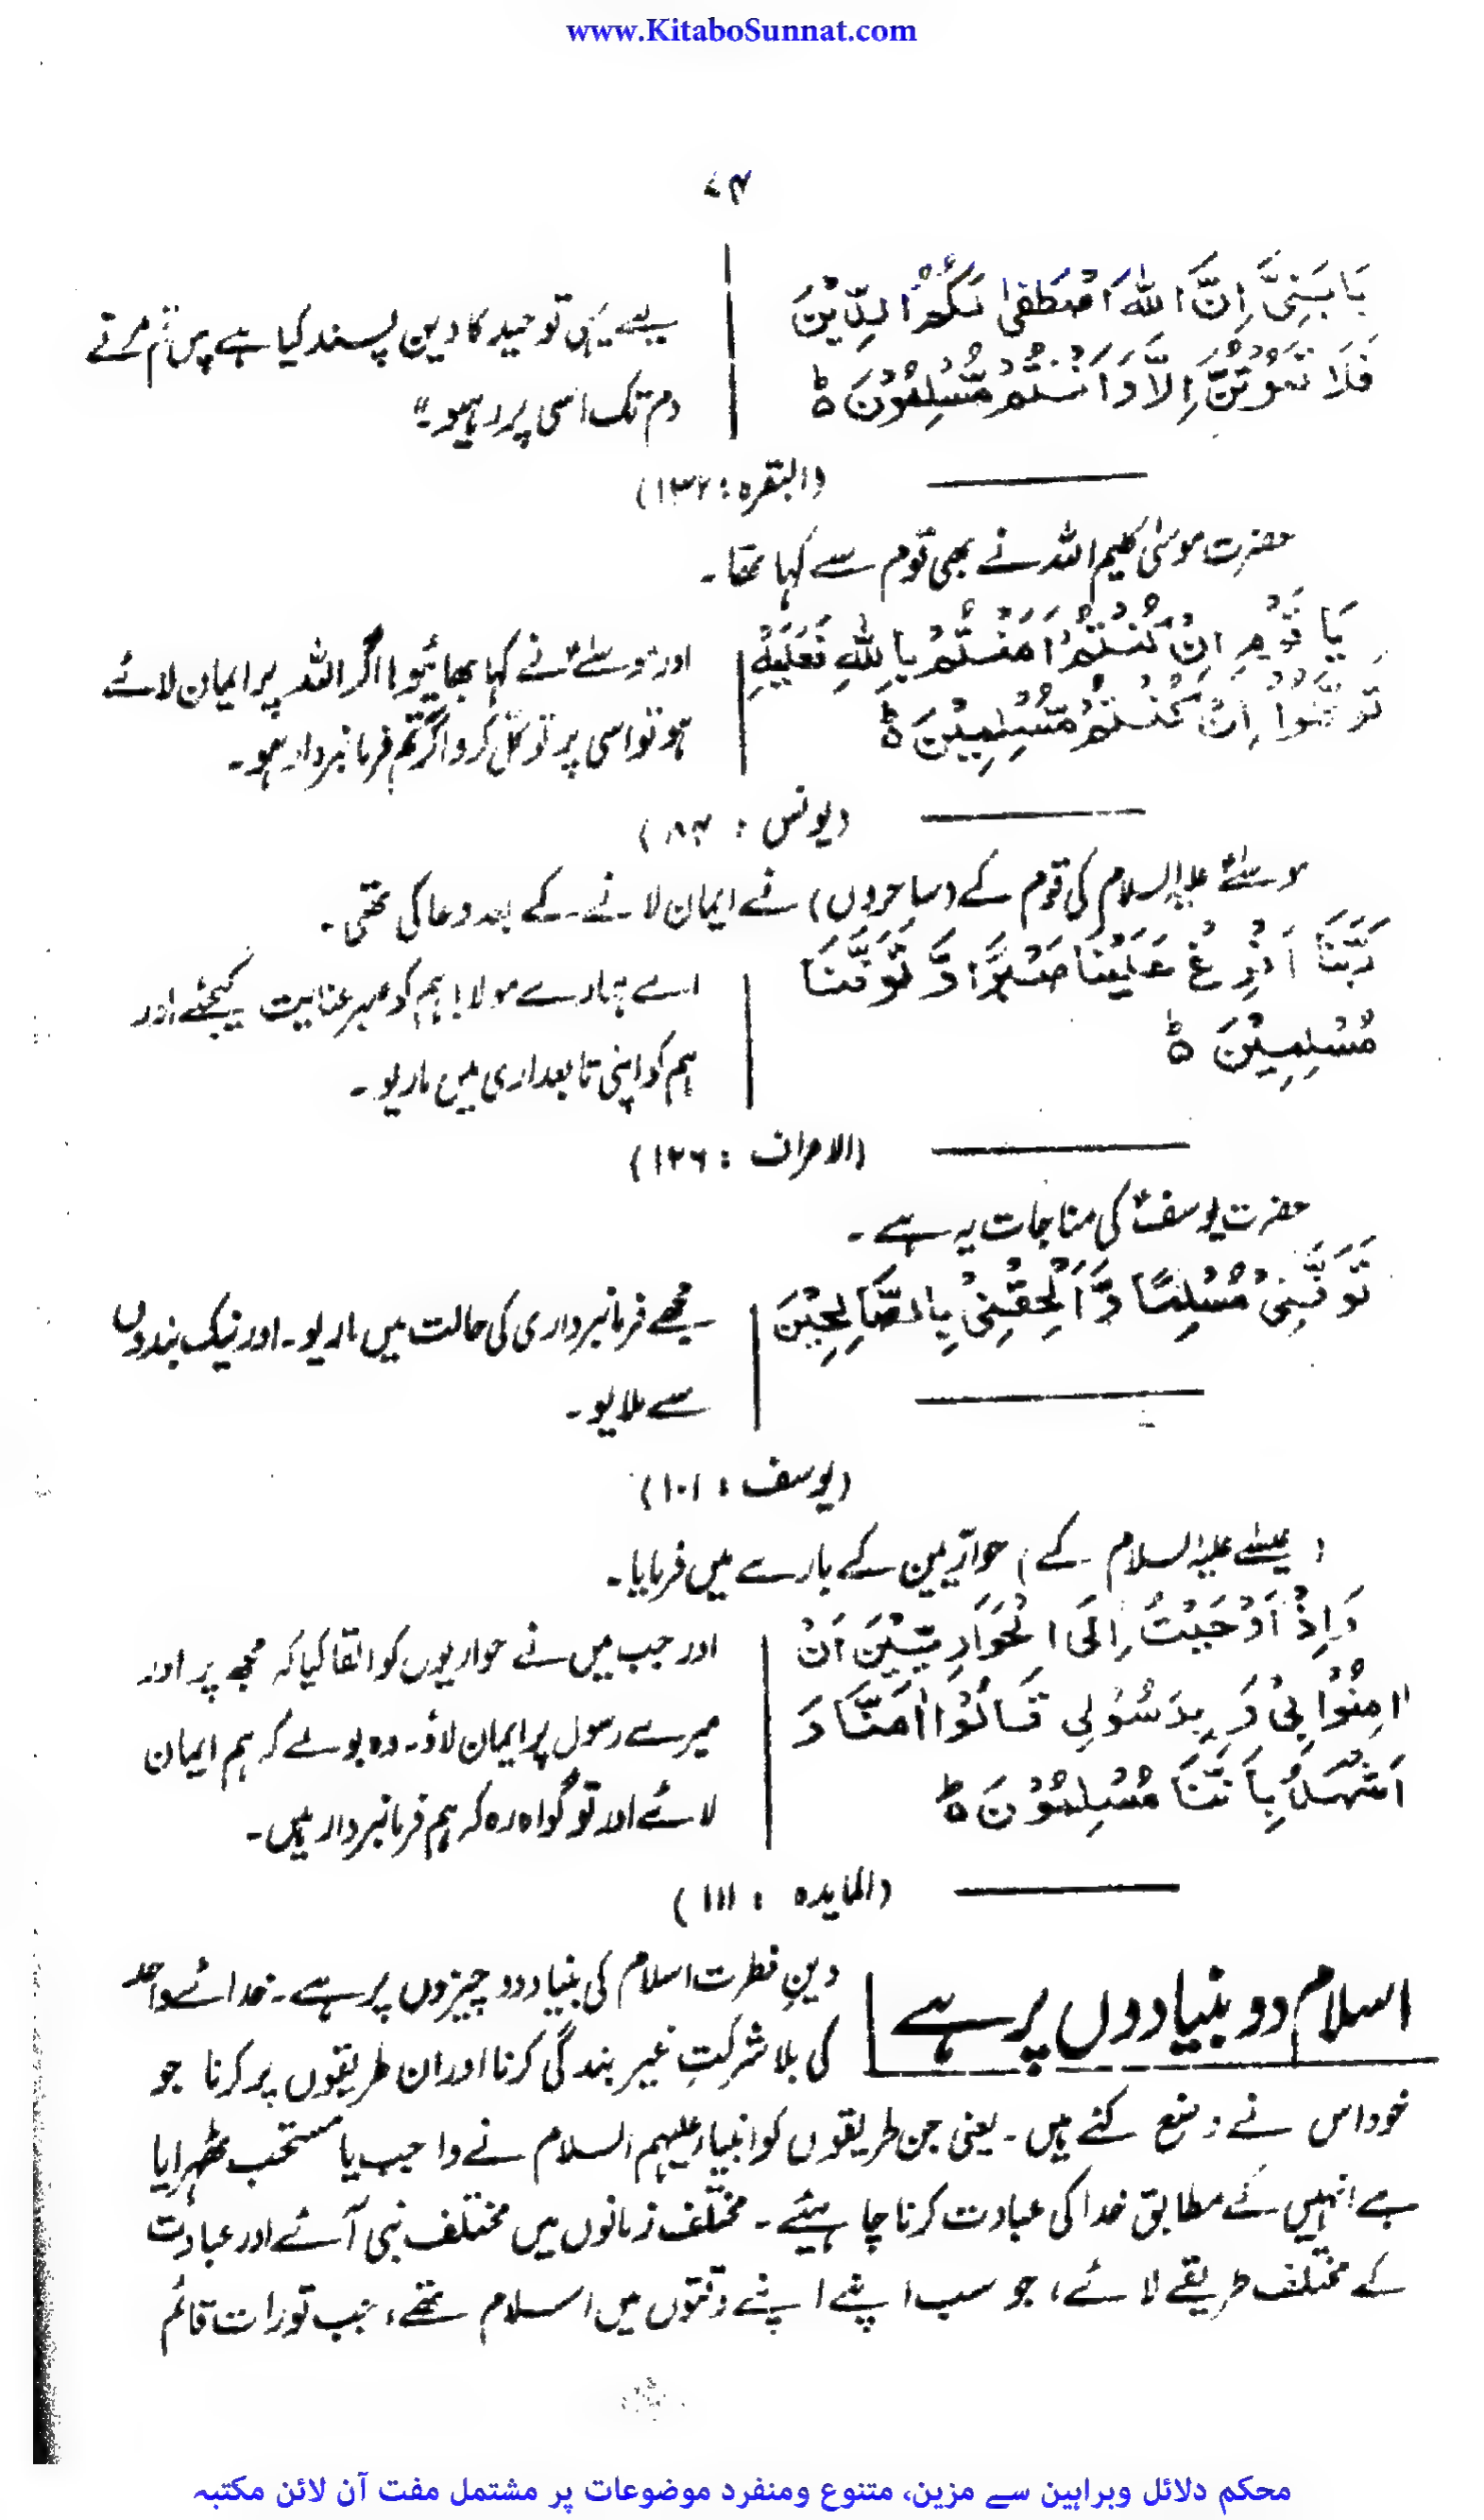 www.KitaboSunnat.com
۷۴
يَا بَنِيَّ إِنَّ اللهَ اصْطَفىٰ لَكُمُ الدِّيْنَ
فَلَا تَمُوْتُنَّ إِلَّا وَأَنْتُمْ مُّسْلِمُوْنَ ہ
لیے یہی توحید کا دین پسند کیا ہے پس تم مرتے
دم تک اسی پر رہیو۔"
(البقرہ : ۱۳۲)
حضرت موسیٰ کلیم اللہ نے بھی قوم سے کہا تھا۔
يَا قَوْمِ اِنْ كُنْتُمْ اٰمَنْتُمْ بِاللهِ فَعَلَيْهِ
تَوَكَّلُوْا اِنْ كُنْتُمْ مُّسْلِمِيْنَ ہ
اور موسےٰؑ نے کہا بھائیو! اگر اللہ پر ایمان لائے
ہو تو اسی پر توکل کرو اگر تم فرمانبردار ہو۔
(یونس : ۸۴)
موسےٰؑ علیہ السلام کی قوم کے (ساحروں) نے ایمان لانے کے بعد دعا کی تھی۔
رَبَّنَا اَفْرِغْ عَلَيْنَا صَبْرًا وَّ تَوَفَّنَا
مُسْلِمِيْنَ ہ
اے ہمارے مولا! ہم کو صبر عنایت کیجئے اور
ہم کو اپنی تابعداری میں ماریو۔
(الاعراف : ۱۲۶)
حضرت یوسفؑ کی مناجات یہ ہے۔
تَوَفَّنِيْ مُسْلِمًا وَّ اَلْحِقْنِيْ بِالصَّالِحِيْنَ
مجھے فرمانبرداری کی حالت میں ماریو۔ اور نیک بندوں
سے ملایو۔
(یوسف : ۱۰۱)
(عیسٰے علیہ السلام کے) حوارّیین کے بارے میں فرمایا۔
وَاِذْ اَوْحَيْتُ اِلَى الْحَوَارِيّٖنَ اَنْ
اٰمِنُوْا بِيْ وَ بِرَسُوْلِي قَالُوْا اٰمَنَّا وَ
اشْهَدْ بِاَنَّنَا مُسْلِمُوْنَ ہ
اور جب میں نے حواریوں کو القا کیا کہ مجھ پر اور
میرے رسول پر ایمان لاؤ۔ وہ بولے کہ ہم ایمان
لائے اور تو گواہ رہ کہ ہم فرمانبردار ہیں۔
(المایدہ : ۱۱۱)
اسلام دو بنیادوں پر ہے
دینِ فطرت اسلام کی بنیاد دو چیزوں پر ہے۔ خدائے واحد
کی بلا شرکتِ غیر بندگی کرنا اور ان طریقوں پر کرنا جو
خود اس نے وضع کئے ہیں۔ یعنی جن طریقوں کو انبیاء علیہم السلام نے واجب یا مستحب ٹھہرایا
ہے انہیں کے مطابق خدا کی عبادت کرنا چاہیئے۔ مختلف زمانوں میں مختلف نبی آئے اور عبادت
کے مختلف طریقے لائے، جو سب اپنے اپنے وقتوں میں اسلام تھے، جب تورات قائم
محکم دلائل وبراہین سے مزین، متنوع ومنفرد موضوعات پر مشتمل مفت آن لائن مکتبہ